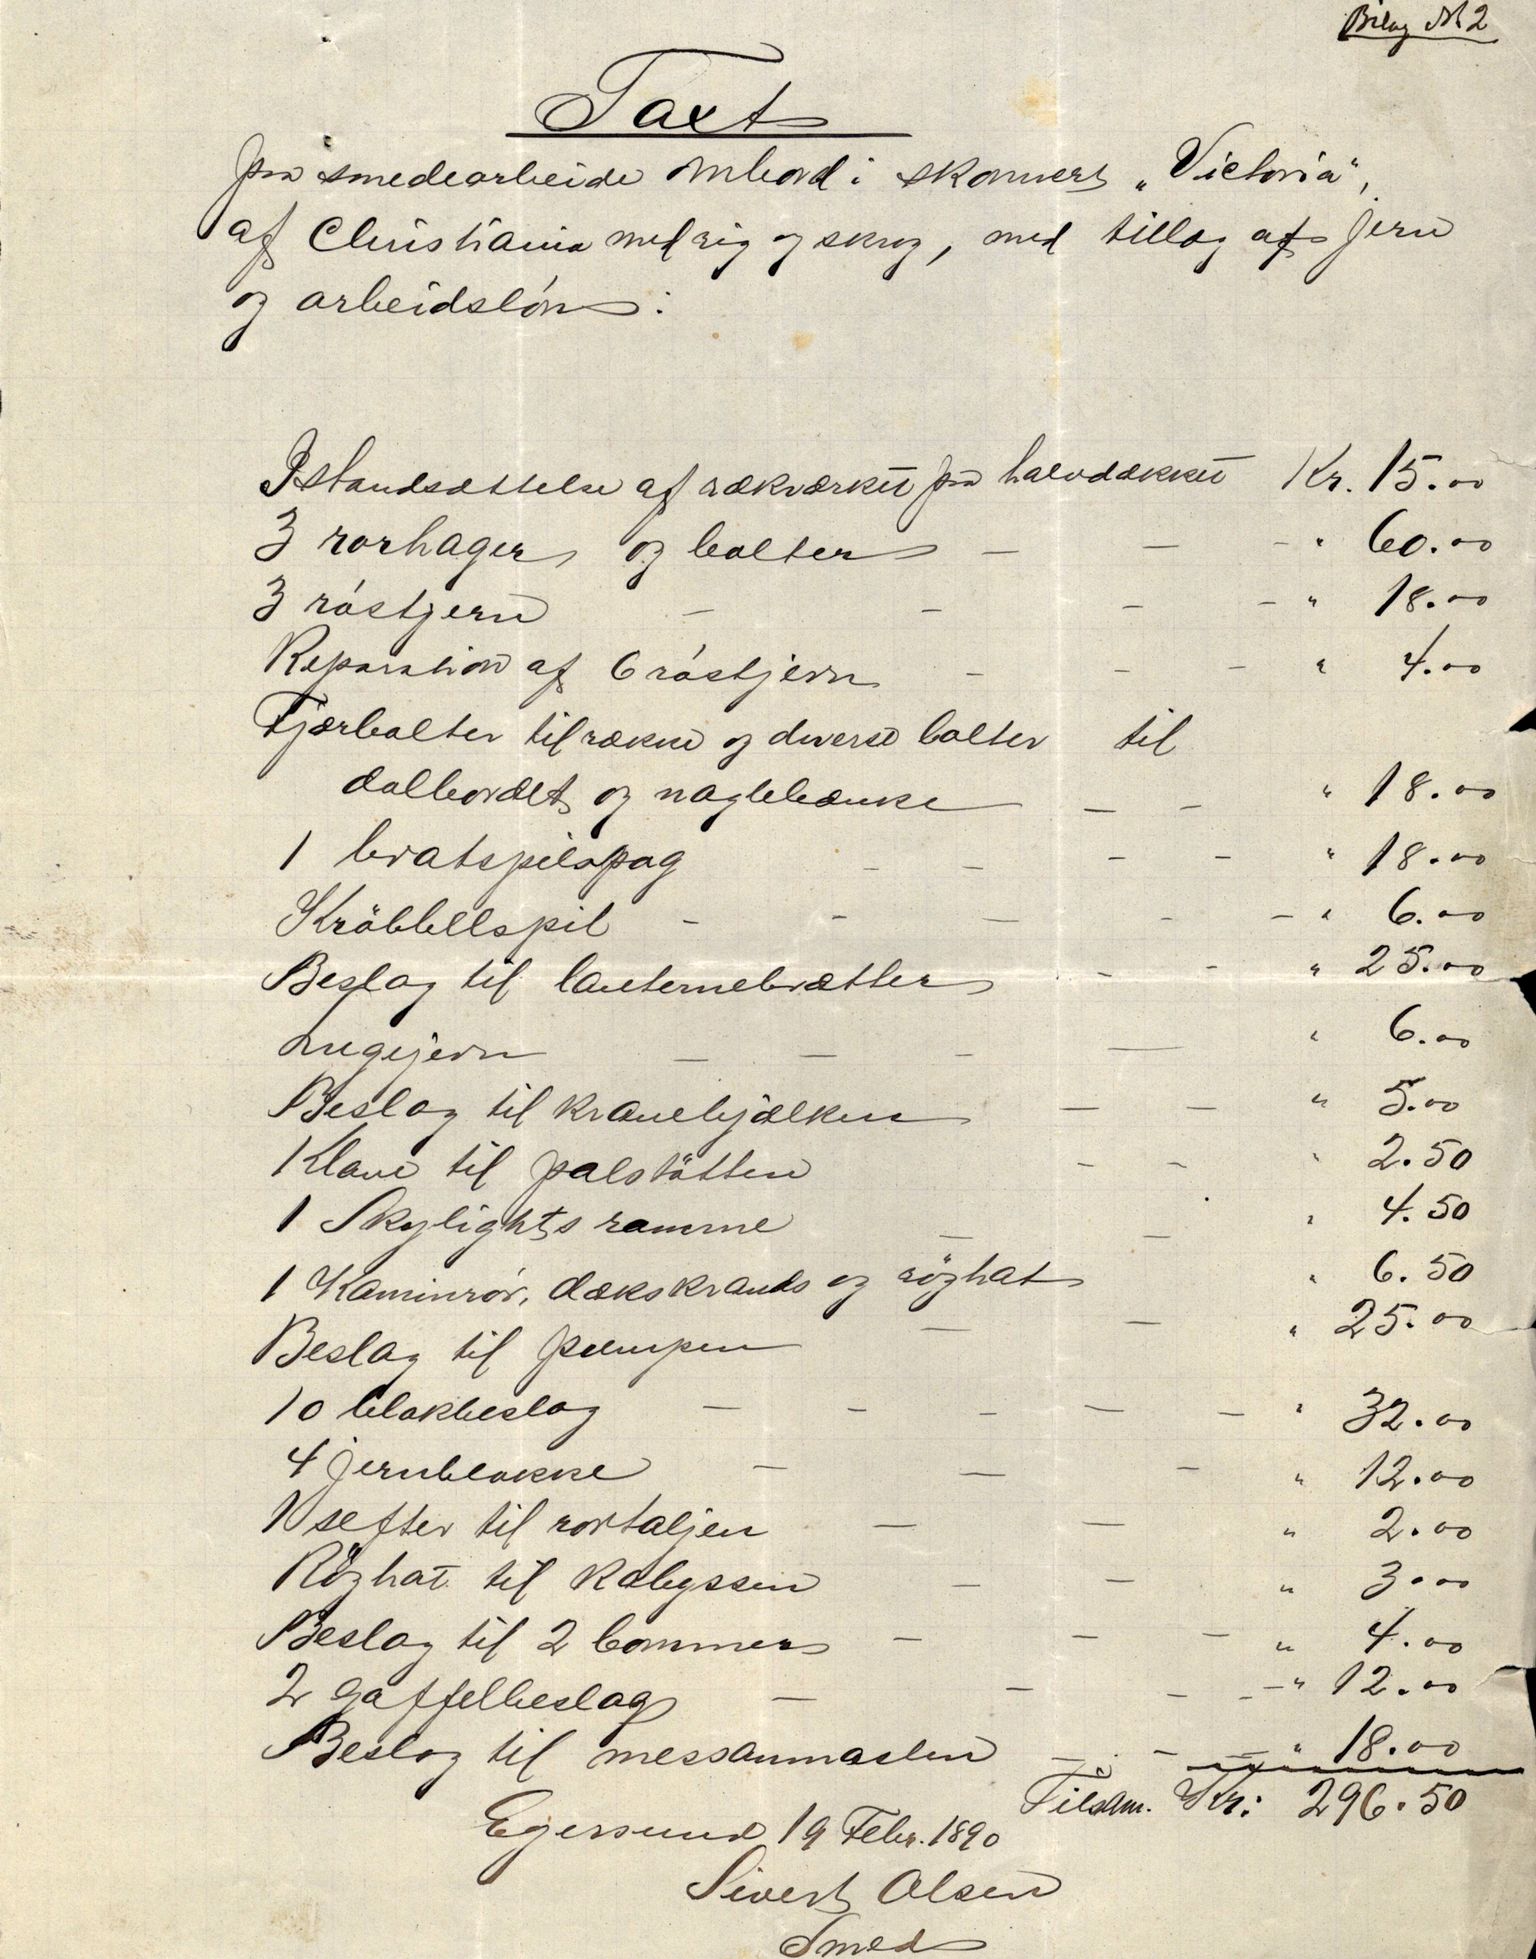 Bilag № 2
Taxt
paa smedearbeide ombord i skonnert „Victoria",
af Christiania med rig og skrog, med tillæg af jern
og arbeidslön:
Istandsættelse af rækværket paa halvdækket Kr. 15.00
3 rorhager og bolter — — - " 60.00
3 röstjern - - - - " 18.00
Reparation af 6 röstjern - - - " 4.00
Fjærbolter til række og diverse bolter til
dolbordet og naglebænke — - " 18.00
1 bratspilspag - - - - " 18.00
Kröbbelspil - - — - - " 6.00
Beslag til lanternebrætter - - " 25.00
Lugejern — — - — " 6.00
Beslag til kranebjælken — — " 5.00
1 Klave til palstötten - - " 2.50
1 Skylights ramme — — " 4.50
1 Kaminrör, dækskrands og röghat " 6.50
Beslag til pumpen — — " 25.00
10 blokbeslag — - - — — " 32.00
4 jernblokke — — - " 12.00
1 sefter til rortaljen — — " 2.00
Röghat til kabyssen — — " 3.00
Beslag til 2 bommer — — — " 4.00
2 gaffelbeslag — - - - " 12.00
Beslag til messanmasten — - — " 18.00
Tilsam. Kr: 296.50
Egersund 19 Febr. 1890
Sivert Olsen
Smed